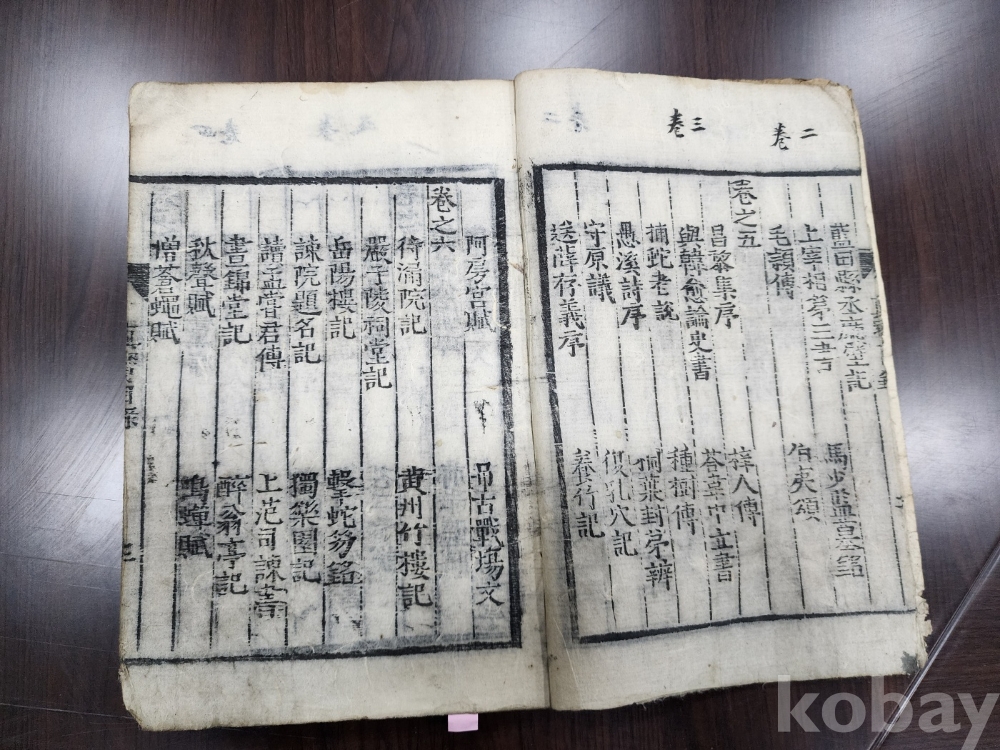 二卷
三卷
藍田縣丞廳壁記 馬少監墓銘
上宰相第三書 伯夷頌
毛頴傳
卷之五
昌黎集序 梓人傳
與韓愈論史書 答韋中立書
捕蛇者說 種樹傳
愚溪詩序 桐葉封弟辨
守原議 復乳穴記
送薛存義序 養竹記
阿房宮賦 弔古戰場文
卷之六
待漏院記 黃州竹樓記
嚴子陵祠堂記
岳陽樓記 擊蛇笏銘
諫院題名記 獨樂園記
讀孟嘗君傳 上范司諫書
晝錦堂記 醉翁亭記
秋聲賦 鳴蟬賦
憎蒼蠅賦
kobay